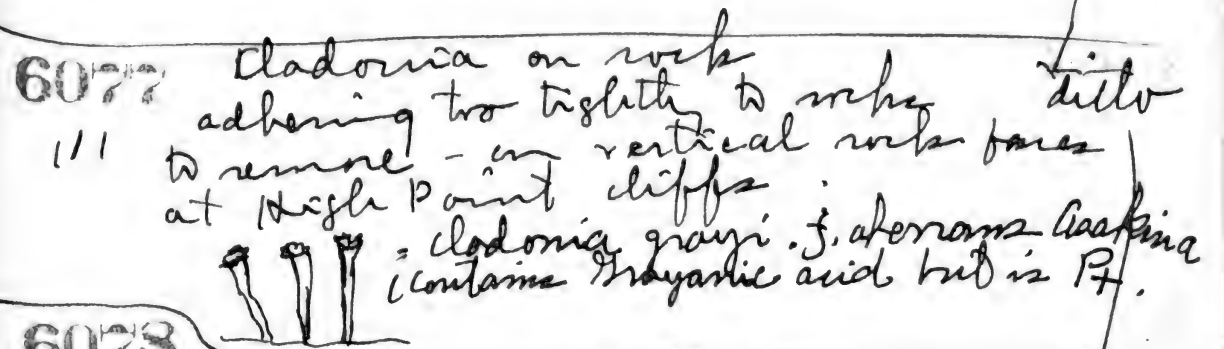 6077 Cladonia on rock ditto
adhering too tightly to rocks
111 to remove - on vertical rock faces
at High Point cliffs.
= Cladonia grayi. f. aberrans Asahina
(contains Grayanic acid but is P+.
6078